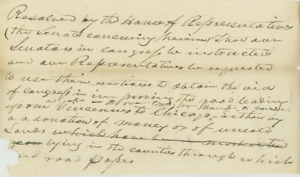 Resolved by the House of Representatives
(the Senate concurring herein) That our
Senators in congress be instructed
and our Representatives be requested
to use their exertions to obtain the aid
of Congress in improving the road leading
from Vincennes to Chicago, either by
a donation of money or of unsold
Lands which have
lying in the counties through which
said road passes